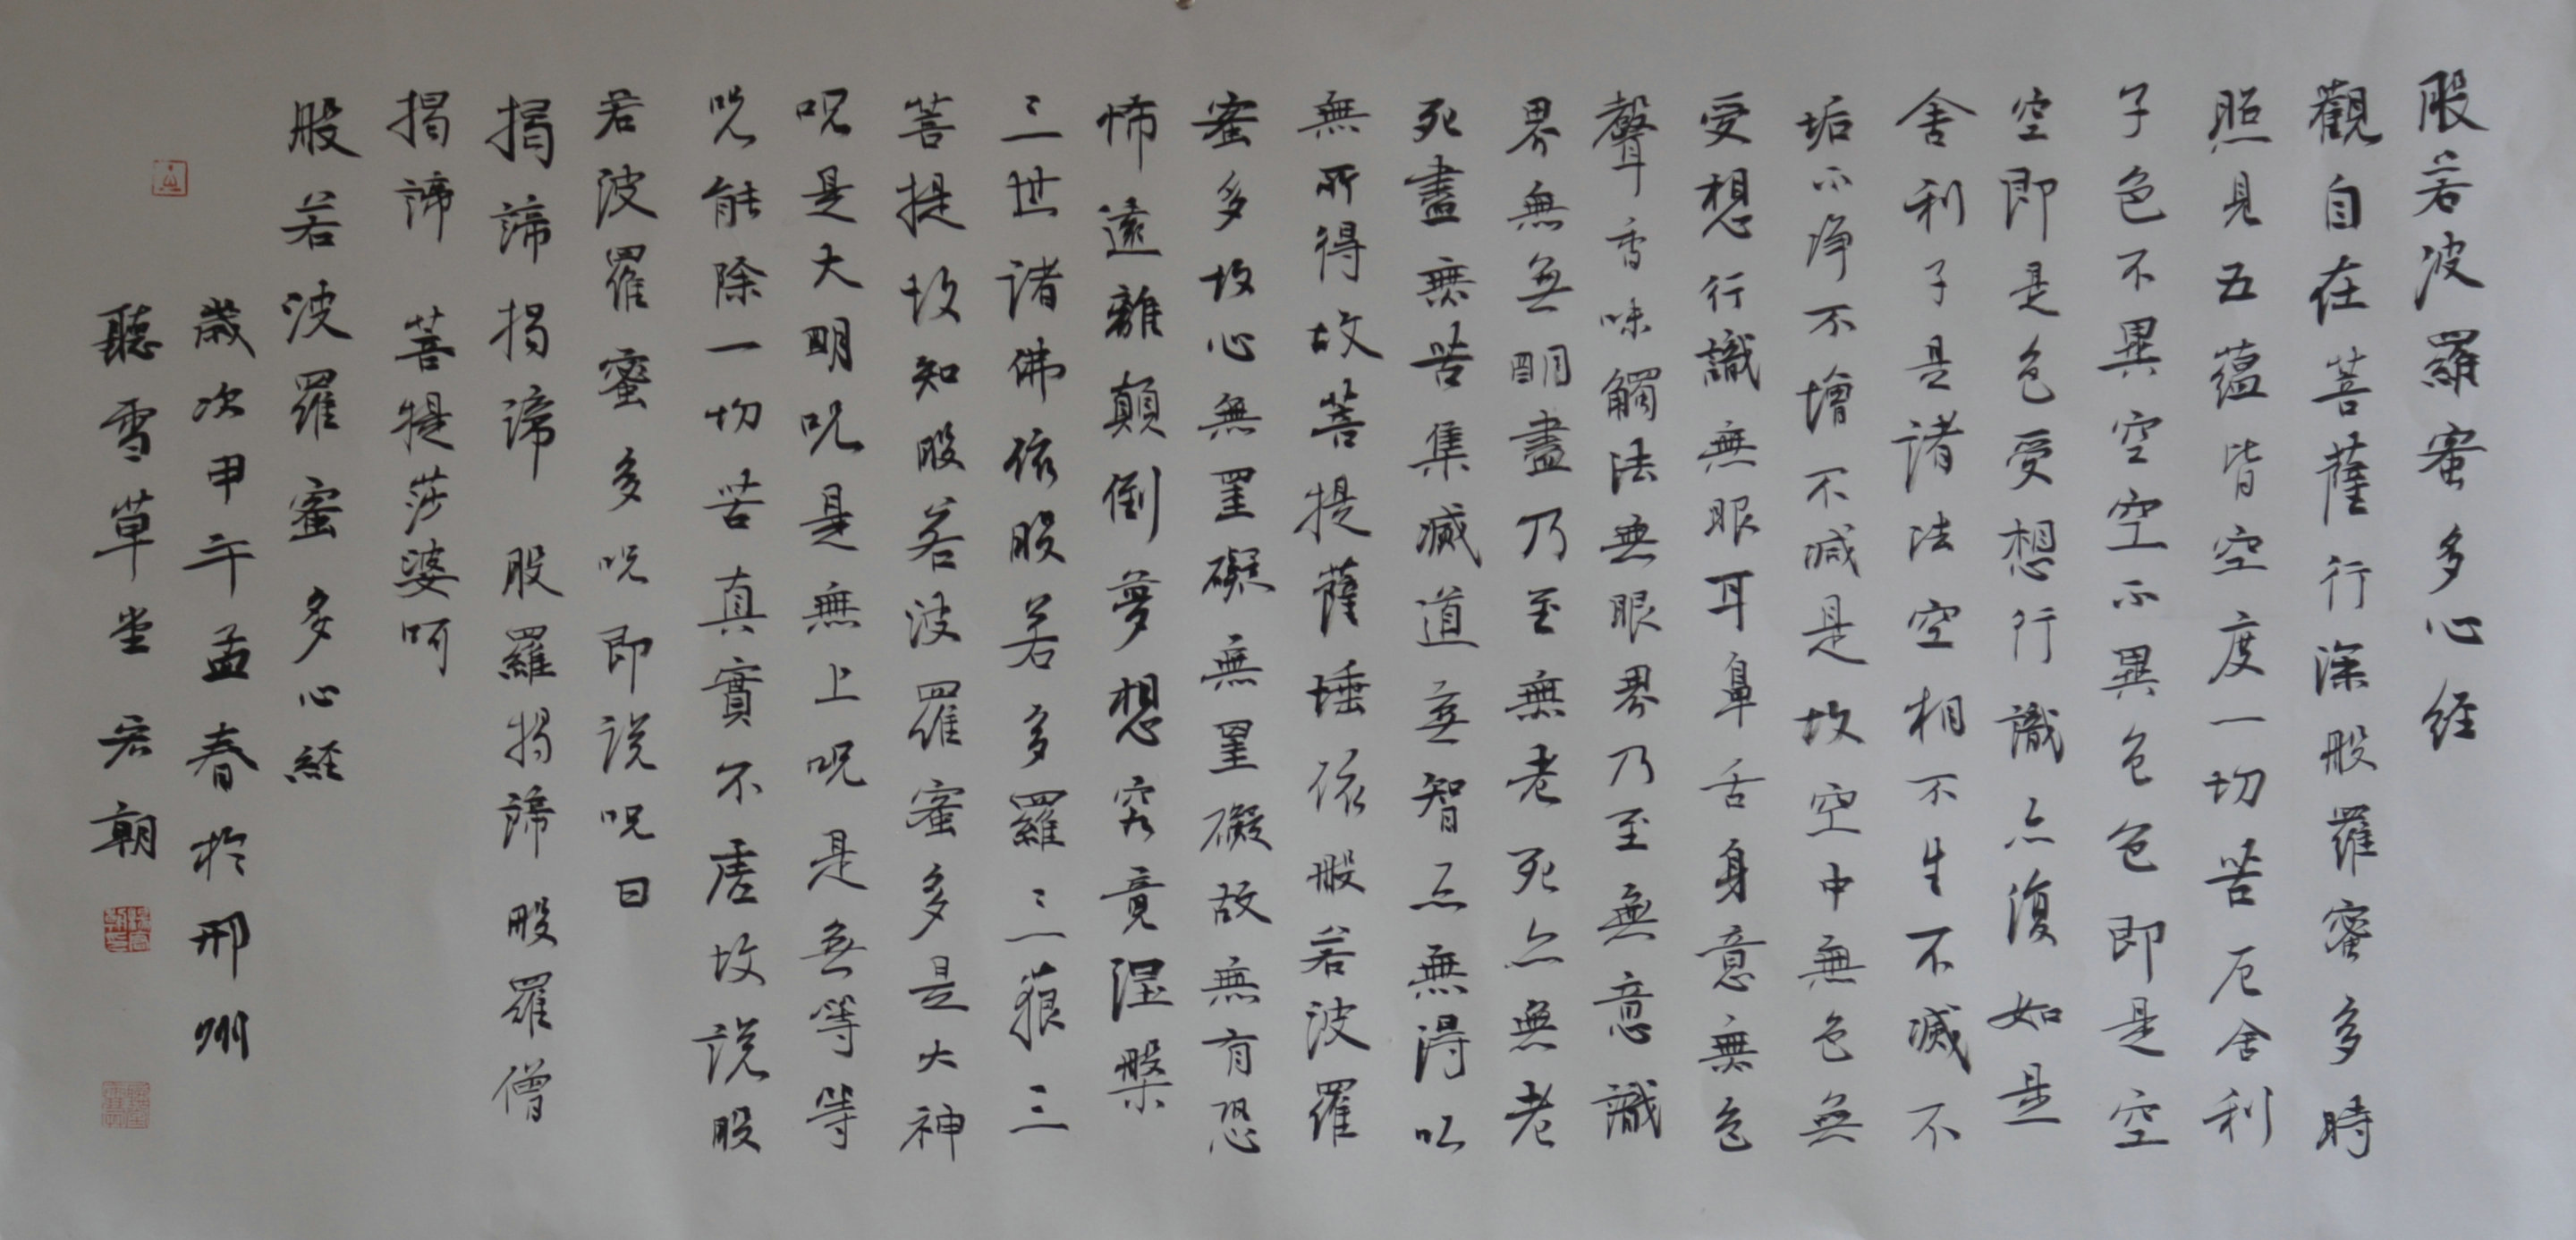 般若波羅蜜多心经
觀自在菩薩行深般羅蜜多時
照見五蘊皆空度一切苦厄舍利
子色不異空空不異色色即是空
空即是色受想行識亦復如是
舍利子是諸法空相不生不滅不
垢不净不增不減是故空中無色無
受想行識無眼耳鼻舌身意無色
聲香味觸法無眼界乃至無意識
界無無明盡乃至無老死亦無老
死盡無苦集滅道無智亦無得以
無所得故菩提薩埵依般若波羅
蜜多故心無罣礙無罣礙故無有恐
怖遠離顛倒夢想究竟涅槃
三世諸佛依般若多羅三藐三
菩提故知般若波羅蜜多是大神
呪是大明呪是無上呪是無等等
呪能除一切苦真實不虛故說般
若波羅蜜多呪即說呪曰
揭諦揭諦 般羅揭諦 般羅僧
揭諦 菩提莎婆呵
般若波羅蜜多心経
歲次甲午孟春於邢州
聽雪草堂 朝